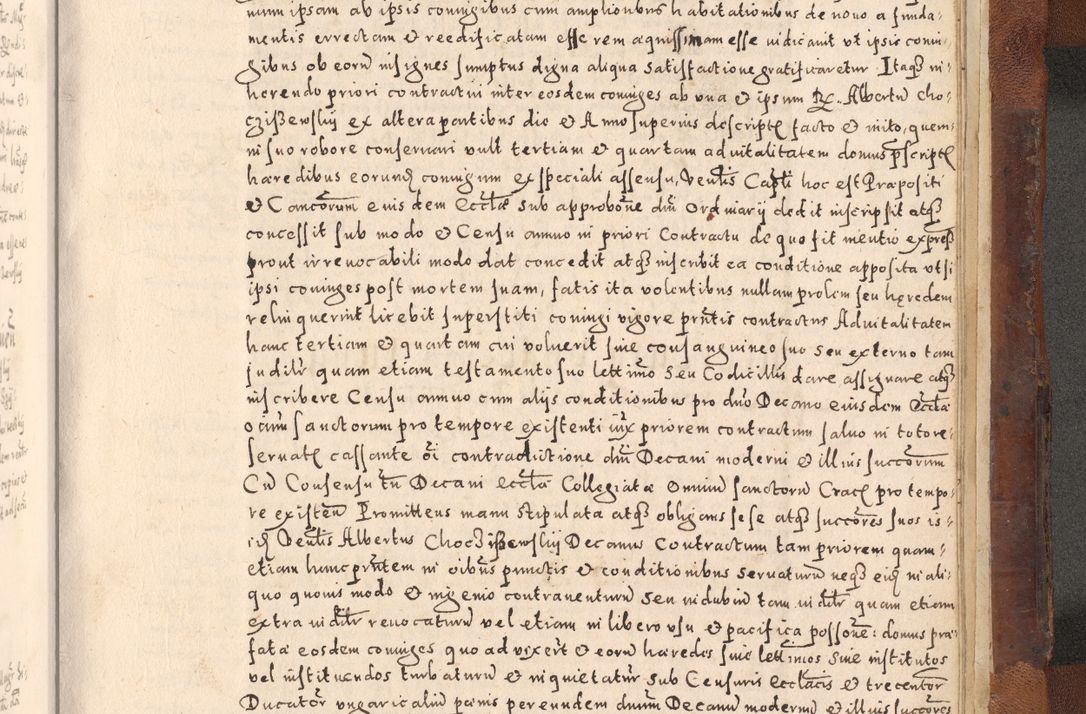 num ipsam ab ipsis coniugibus cum amplioribus habitationibus de nouo a funda-
mentis errectam et reedificatam esse rem aequissimam esse iudicauit vt ipsis coniu-
gibus ob eorū insignes sumptus digna aliqua satisfactione gratificaretur. Itaqȝ in-
herendo priori contractui inter eosdem coniuges ab vna et ipsum R. Albertū Cho-
cziszewskij ex altera partibus die et Anno superius descriptę facto et inito, quem
in suo robore conseruari vult tertiam et quartam aduitalitatem domus pscriptę
haeredibus eorundē coniugum ex speciali assensu, Venlis Capli hoc est Praepositi
et Canicorum eiusdem Ecclae sub approbone dni Ordinarij dedit inscripsit atqȝ
concessit sub modo et Censu annuo in priori Contractu de quo fit mentio express
prout irreuocabili modo dat concedit atqȝ inscribit ea conditione apposita vt si
ipsi coniuges post mortem suam, fatis ita volentibus nullam prolem seu hęredem
relinquerint licebit superstiti coniugi vigore prntis contractus Aduitalitatem
hanc tertiam et quartam cui voluerit siue consanguineo suo seu externo tam
judilr quam etiam testamento suo lettimo seu Codicillis dare assignare atqȝ
inscribere Censu annuo cum alijs conditionibus pro dno Decano eiusdem Ecclae
oium sanctorum pro tempore existenti iux priorem contractum saluo in toto re-
seruatę cassante oi contradictione dni Decani moderni et illius succorum
Cū Consensu tn Decani Eccla Collegiatae Omniū sanctorū Crac pro tempo-
re existen Promittens manu stipulata atqȝ obligans sese atqȝ succores suos is-
idē Venlis Albertus Chocziszewskij Decanus Contractum tam priorem quam-
etiam hunc prntem in oibus punctis et conditionibus seruaturū neqȝ eiȝ in ali-
quo quouis modo et ingenio contrauenturū seu indubiū tam iudilr quam etiam
extra iudilr reuocaturū vel etiam in libero vsu et pacifica possone: domus prae-
fatae eosdem coniuges quo ad vixert et eorū haeredes siue lettimos siue institutos
vel instituendos turbaturū et inquietatur sub Censuris ecclacis et trecentor
Ducator vngaricaliū paenis per eundem dnum Decanū modernū et illius succores